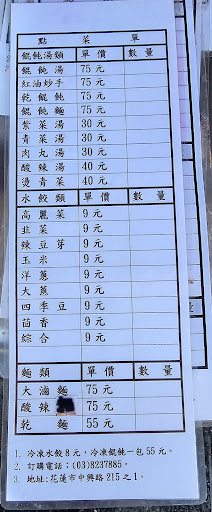 點菜單
餛飩湯類 單價 數量
餛飩湯 75元
紅油炒手 75元
乾餛飩 75元
餛飩麵 75元
紫菜湯 30元
青菜湯 30元
肉丸湯 30元
酸辣湯 40元
燙青菜 40元
水餃類 單價 數量
高麗菜 9元
韭菜 9元
辣豆芽 9元
玉米 9元
洋蔥 9元
大蔥 9元
四季豆 9元
茴香 9元
綜合 9元
麵類 單價 數量
大滷麵 75元
酸辣 75元
乾麵 55元
1. 冷凍水餃8元,冷凍餛飩一包55元。
2. 訂購電話:(03)8237885。
3. 地址:花蓮市中興路215之1。